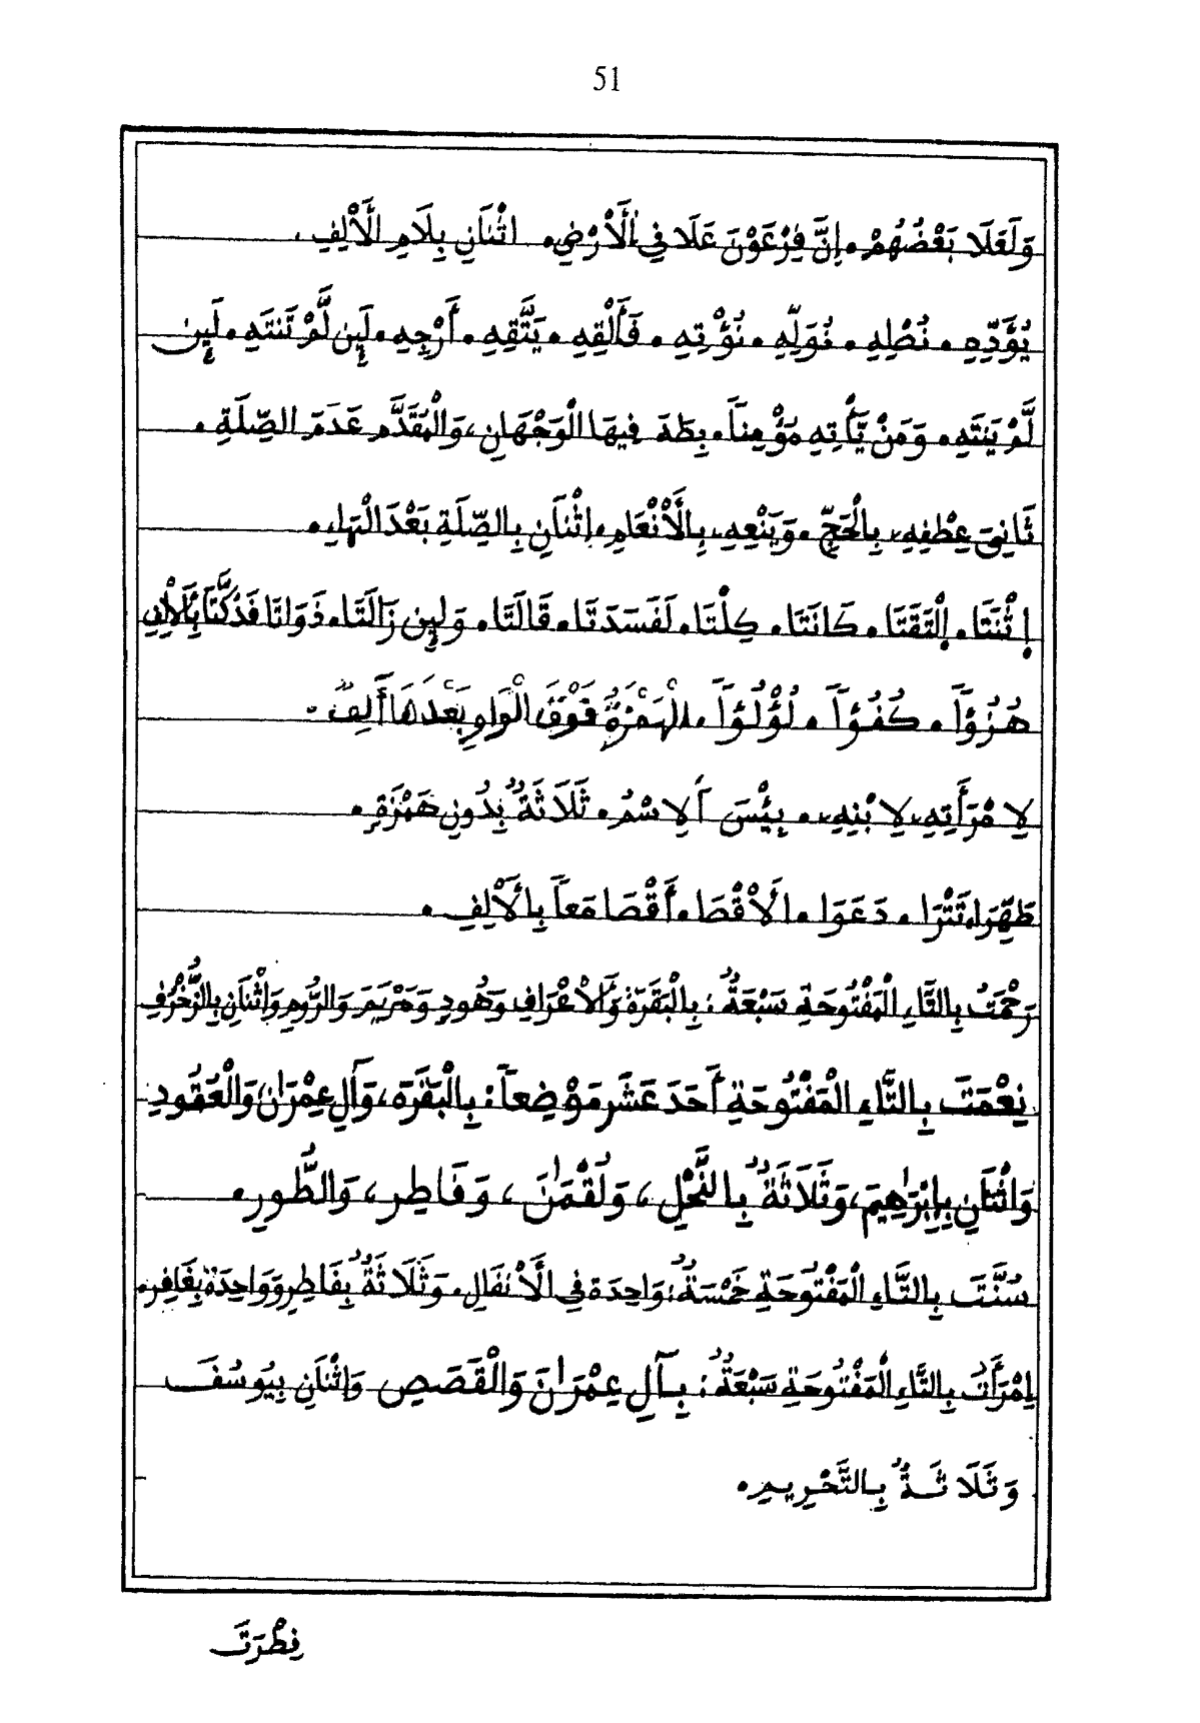 51
وَلَعَلَا بَعْضُهُمْ. إِنَّ فِرْعَوْنَ عَلَا فِي اَلَارْضِ. اثْنَانِ بِلَامِ الْأَلِفِ.
يُؤَدِّهِ. نُصْلِهِ. نُوَلِّهِ. نُؤْتِهِ. فَأَلْقِهِ. يَتَّقِهِ. أَرْجِهِ. لَئِن لَّمْ تَنتَهِ. لَئِن
لَّمْ يَنتَهِ. وَمَنْ يَّأْتِهِ مُؤْمِناً. بِطَهَ فِيهَا الْوَجْهَانِ، وَالْمُقَدَّم عَدَمَ الصِّلَةِ.
ثَانِيَ عِطْفِهِ، بِالْحَجِّ. وَيَنْعِهِ، بِالْأَنْعَامِ. اِثْنَانِ بِالصِّلَةِ بَعْدَ الْهَاءِ.
إِثْنَتَا. اِلْتَقَتَا. كَانَتَا. كِلْتَا. لَفَسَدَتَا. قَالَتَا. وَلَئِن زَالَتَا. ذَوَاتَا فَدُكَّتَا بِالْأَلِفِ
هُزُؤاً. كُفُؤاً. لُؤْلُؤاً. اَلْهَمْزَةُ فَوْقَ الْوَاوِ بَعْدَهَا أَلِفٌ.
لِامْرَأَتِهِ، لِابْنِهِ،. بِئْسَ اَلِاسْمُ. ثَلَاثَةٌ بِدُونِ هَمْزَةٍ.
طَهِّرَا. تَتْرَا. دَعَوَا. الْأَقْصَا. أَقْصَا مَعاً بِالْأَلِفِ.
رَحْمَتُ بِالتَّاءِ الْمَفْتُوحَةِ سَبْعَةٌ: بِالْبَقَرَةِ وَالْأَعْرَافِ وَهُودٍ وَمَرْيَمَ وَالرُّومِ وَاثْنَانِ بِالزُّخْرُفِ
نِعْمَتَ بِالتَّاءِ الْمَفْتُوحَةِ أَحَدَ عَشَرَ مَوْضِعاً: بِالْبَقَرَةِ، وَآلِ عِمْرَانَ، وَالْعُقُودِ
وَاثْنَانِ بِإِبْرَاهِيمَ، وَثَلَاثَةٌ بِالنَّحْلِ، وَلُقْمَٰنَ، وَفَاطِرِ، وَالطُّورِ.
سُنَّتَ بِالتَّاءِ الْمَفْتُوحَةِ خَمْسَةٌ؛ وَاحِدَة فِي الْأَنفَالِ. وَثَلَاثَةٌ بِفَاطِرِ وَوَاحِدَةٌ بِغَافِرِ.
اِمْرَأَتُ بِالتَّاءِ الْمَفْتُوحَةِ سَبْعَةٌ: بِآلِ عِمْرَانَ وَالْقَصَصِ وَاثْنَانِ بِيُوسُفَ
وَثَلَاثَةٌ بِالتَّحْرِيمِ.
فِطْرَتَ